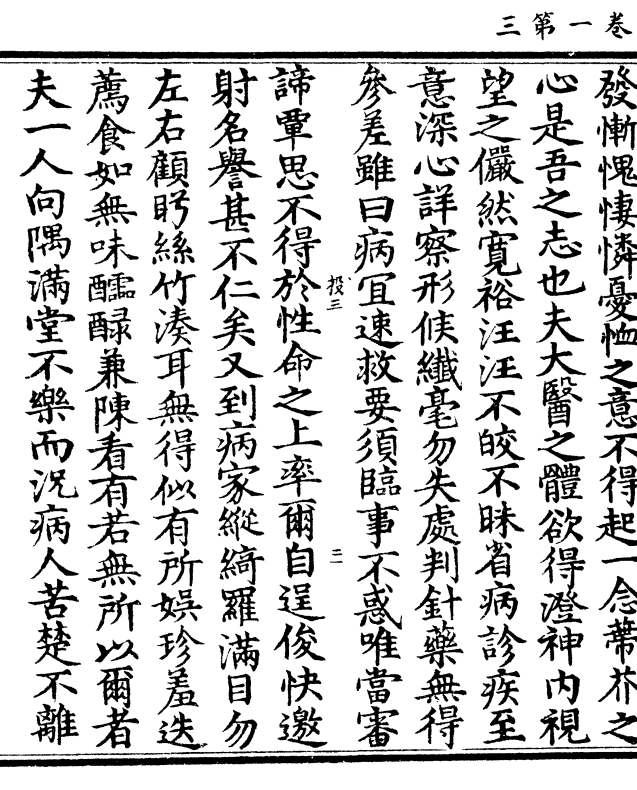 三第一卷
發慚愧悽憐憂恤之意不得起一念蔕芥之
心是吾之志也夫大醫之體欲得澄神內視
望之儼然寬裕汪汪不皎不昧省病診疾至
意深心詳察形候纖毫勿失處判針藥無得
參差雖曰病宜速救要須臨事不惑唯當審
投三
二
諦覃思不得於性命之上率爾自逞俊快邀
射名譽甚不仁矣又到病家縱綺羅滿目勿
左右顧眄絲竹湊耳無得似有所娛珍羞迭
薦食如無味醽醁兼陳看有若無所以爾者
夫一人向隅滿堂不樂而況病人苦楚不離